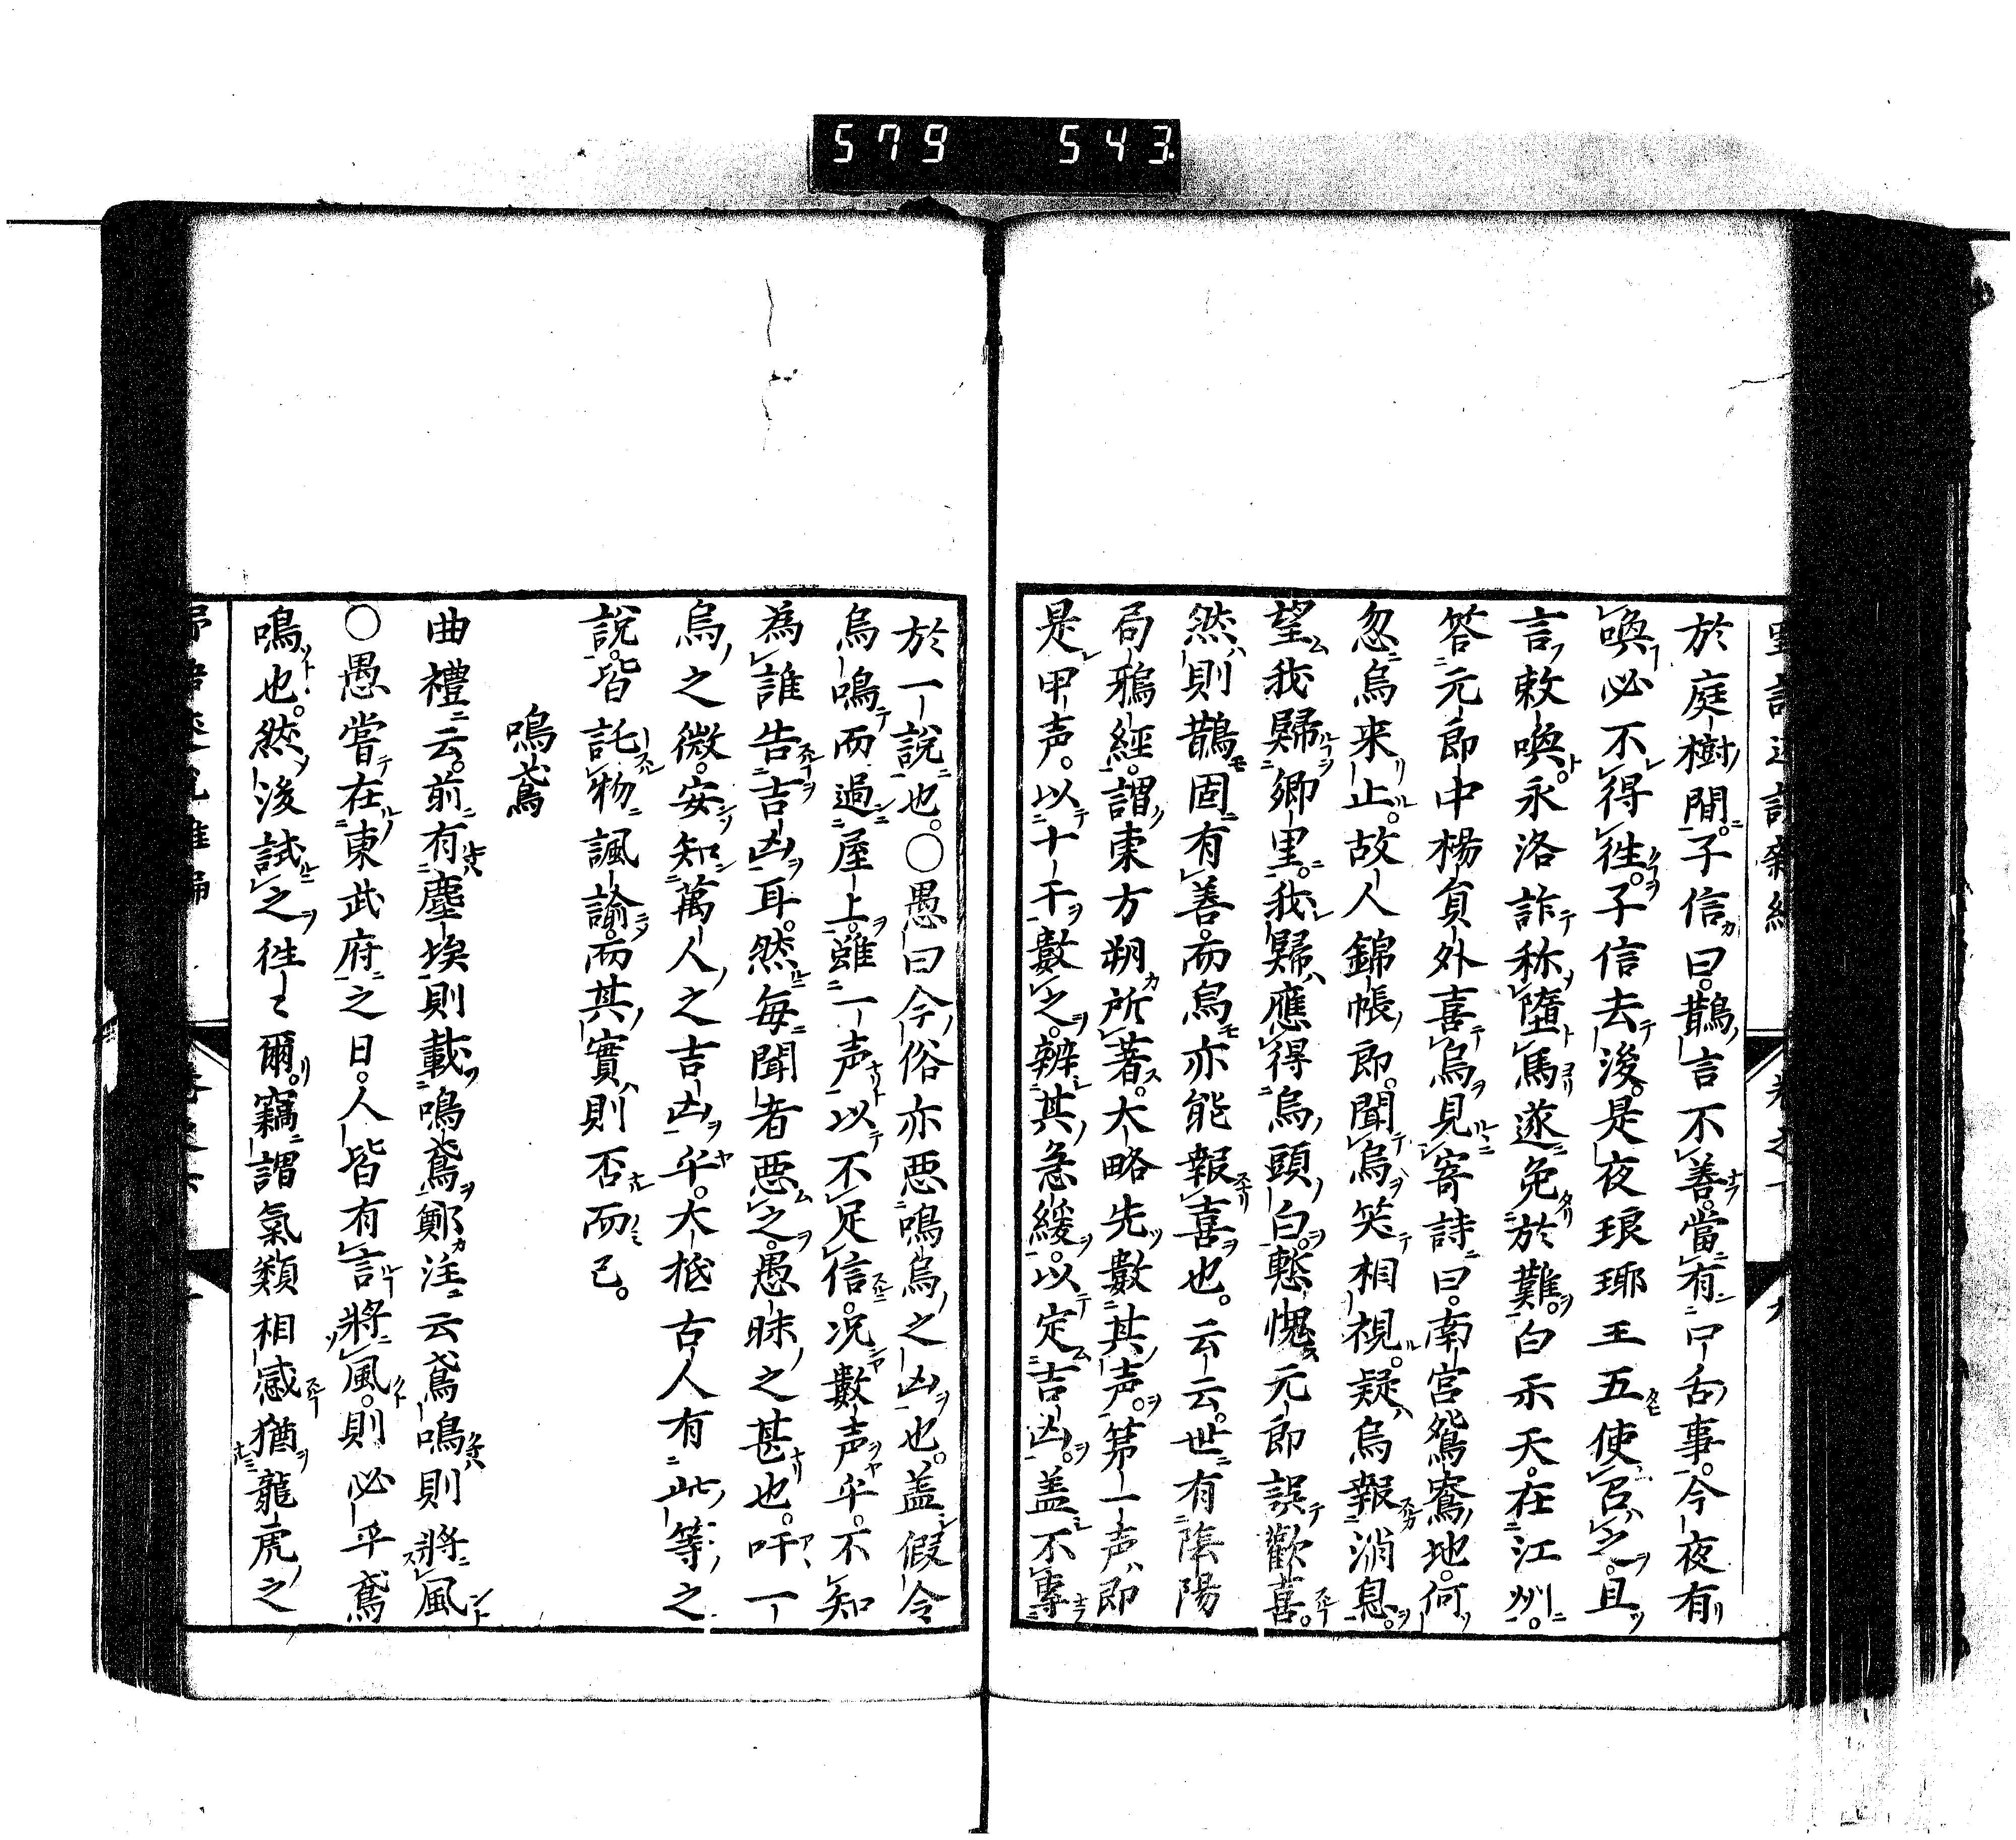 579 543
於庭樹間。子信曰。鵲言不善。當有口舌事。今夜有
喚必不得往。子信去後。是夜琅琊王五使召之。且
言敕喚。永洛詐称墮馬遂免於難。白示天。在江州。
答元郎中楊員外喜烏見寄詩曰。南宮鴛鴦地。何
忽烏来止。故人錦帳郎。聞烏笑相視。疑烏報消息。
望我歸郷里。我歸應得烏頭白。慙愧元郎誤歡喜。
然則鵲固有善。而烏亦能報喜也。云云。世有陰陽
局鴉經。謂東方朔所著。大略先數其声。第一声即
是甲声。以十干數之。辨其急緩。以定吉凶。盖不專
於一說也。○愚曰今俗亦悪鳴烏之凶也。盖假令
烏鳴而過屋上。雖一声以不足信。况數声乎。不知
為誰告吉凶耳。然毎聞者悪之。愚昧之甚也。吁一
烏之微。安知萬人之吉凶乎。大抵古人有此等之
說。皆託物諷諭。而其實則否而已。
鳴鳶
曲禮云。前有塵埃則載鳴鳶鄭注云鳶鳴則將風
○愚嘗在東武府之日。人皆有言將風。則必乎鳶
鳴也。然後試之往〻爾。竊謂氣類相感猶龍虎之